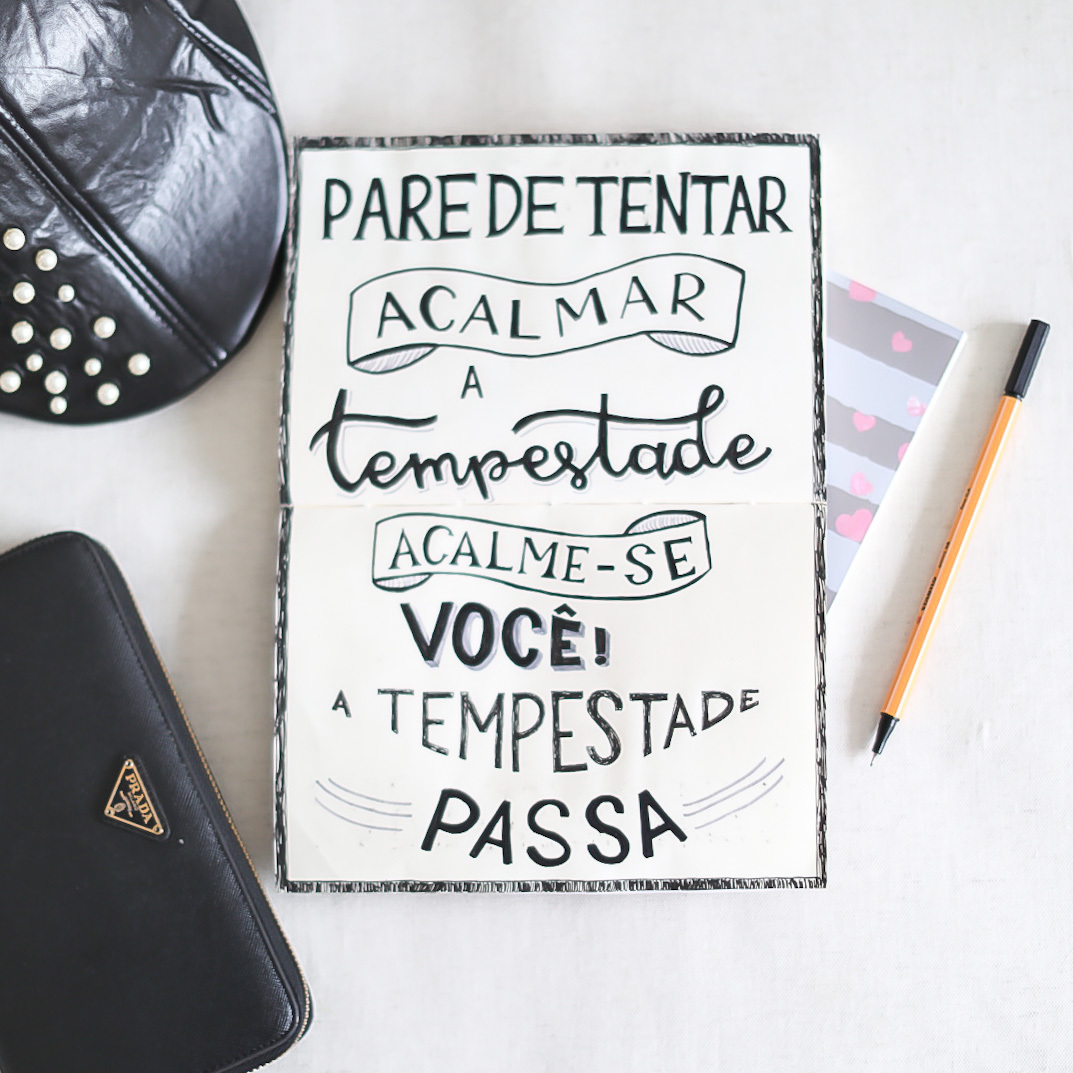 PARE DE TENTAR
ACALMAR
A
tempestade
ACALME-SE
VOCÊ!
A TEMPESTADE
PASSA
PRADA